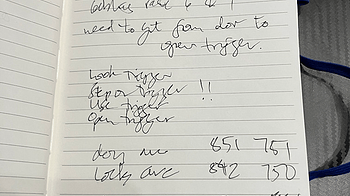 need to get from door to
open trigger.
Look Trigger
Step on Trigger !!
Use Trigger
Open Trigger
851 751
Locks are 842 750